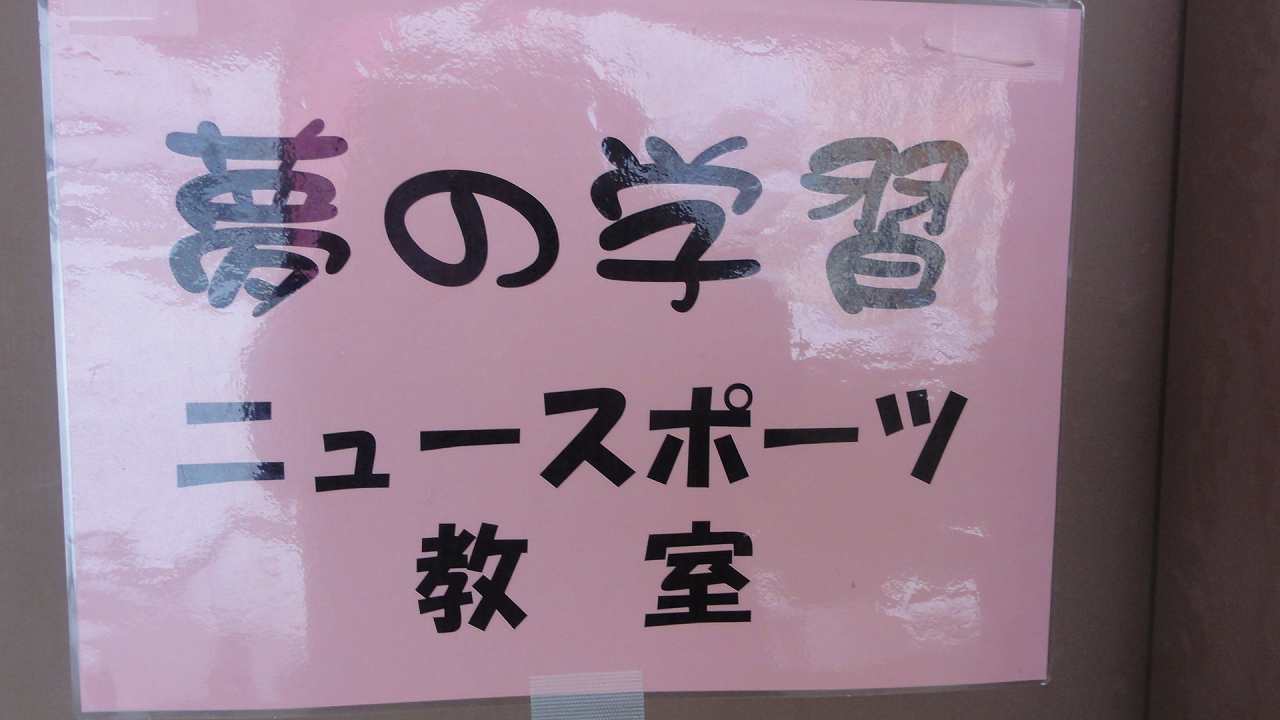 夢の学習
ニュースポーツ
教 室